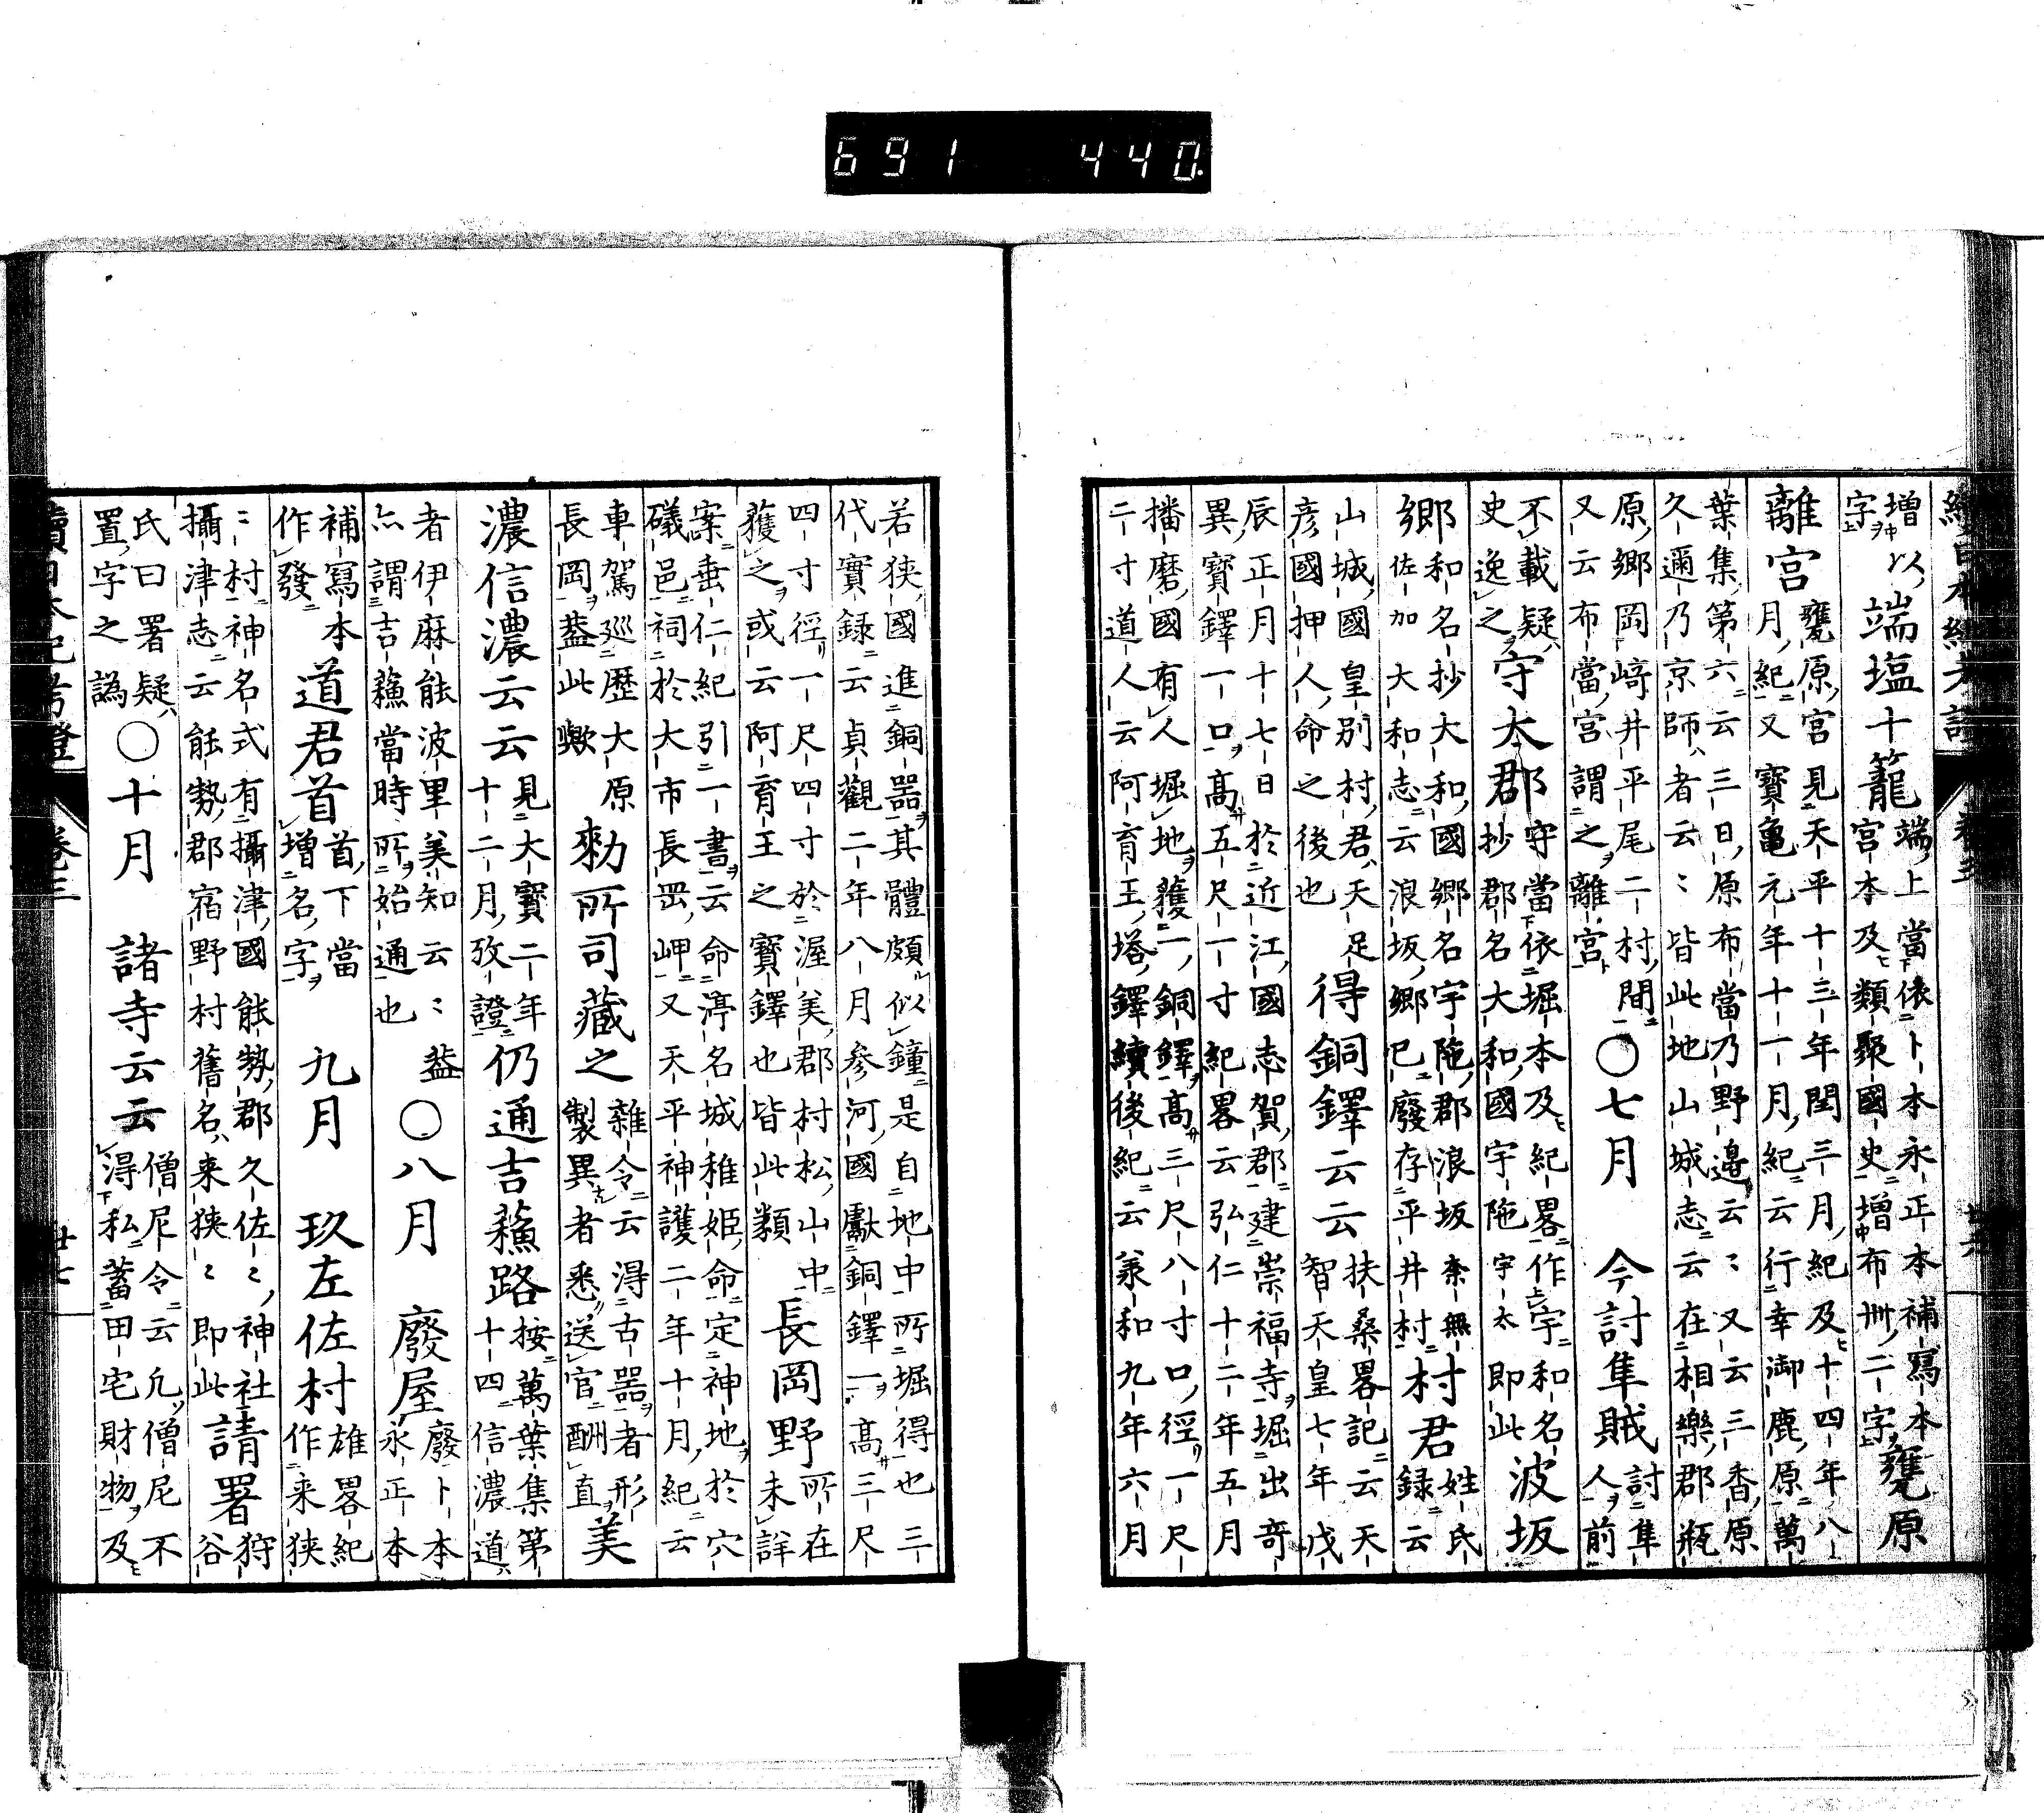 691 440
增以端塩十籠端上當依卜本永正本補寫本甕原
字宮本及類聚國史增布卌二字
離宮甕原宮見天平十三年閏三月紀及十四年八
月紀又寶龜元年十一月紀云行幸御鹿原萬
葉集第六云三日原布當乃野邊云〻又云三香原
久邇乃京師者云〻皆此地山城志云在相樂郡瓶
原郷岡﨑井平尾二村間〇七月 今討隼賊討隼
又云布當宮謂之離宮人前
不載疑守大郡守當依堀本及紀畧作宇和名波坂
史逸之抄郡名大和國宇陁宇太即此
郷和名抄大和國郷名宇陁郡浪坂奈無村君姓氏
佐加大和志云浪坂郷已廢存平井村録云
山城國皇別村君天足得銅鐸云云扶桑畧記云天
彦國押人命之後也智天皇七年戊
辰正月十七日於近江國志賀郡建崇福寺堀出竒
異寶鐸一口高五尺一寸紀畧云弘仁十二年五月
播磨國有人堀地獲一銅鐸高三尺八寸口徑一尺
二寸道人云阿育王塔鐸續後紀云兼和九年六月
若狹國進銅器其體頗似鐘是自地中所堀得也三
代實録云貞觀二年八月參河國獻銅鐸一高三尺
四寸徑一尺四寸於渥美郡村松山中長岡野所在
獲之或云阿育王之寶鐸也皆此類未詳
案垂仁紀引一書云命渟名城稚姬命定神地於穴
礒邑祠於大市長岡岬又天平神護二年十月紀云
車駕巡歷大原勑所司藏之雜令云得古器者形美
長岡葢此歟製異者悉送官酬直
濃信濃云云見大寶二年仍通吉蘓路按萬葉集第
十二月攷證十四信濃道
者伊麻能波里美知云〻葢〇八月 廢屋廢卜本
亦謂吉蘓當時所始通也永正本
補寫本道君首首下當 九月 玖左佐村雄畧紀
作發增名字作来狹
〻村神名式有攝津國能勢郡久佐〻神社請署狩
攝津志云能勢郡宿野村舊名来狹〻即此谷
氏曰署疑〇十月 諸寺云云僧尼令云凢僧尼不
置字之譌得私蓄田宅財物及
續日本紀考證 卷三 廿七